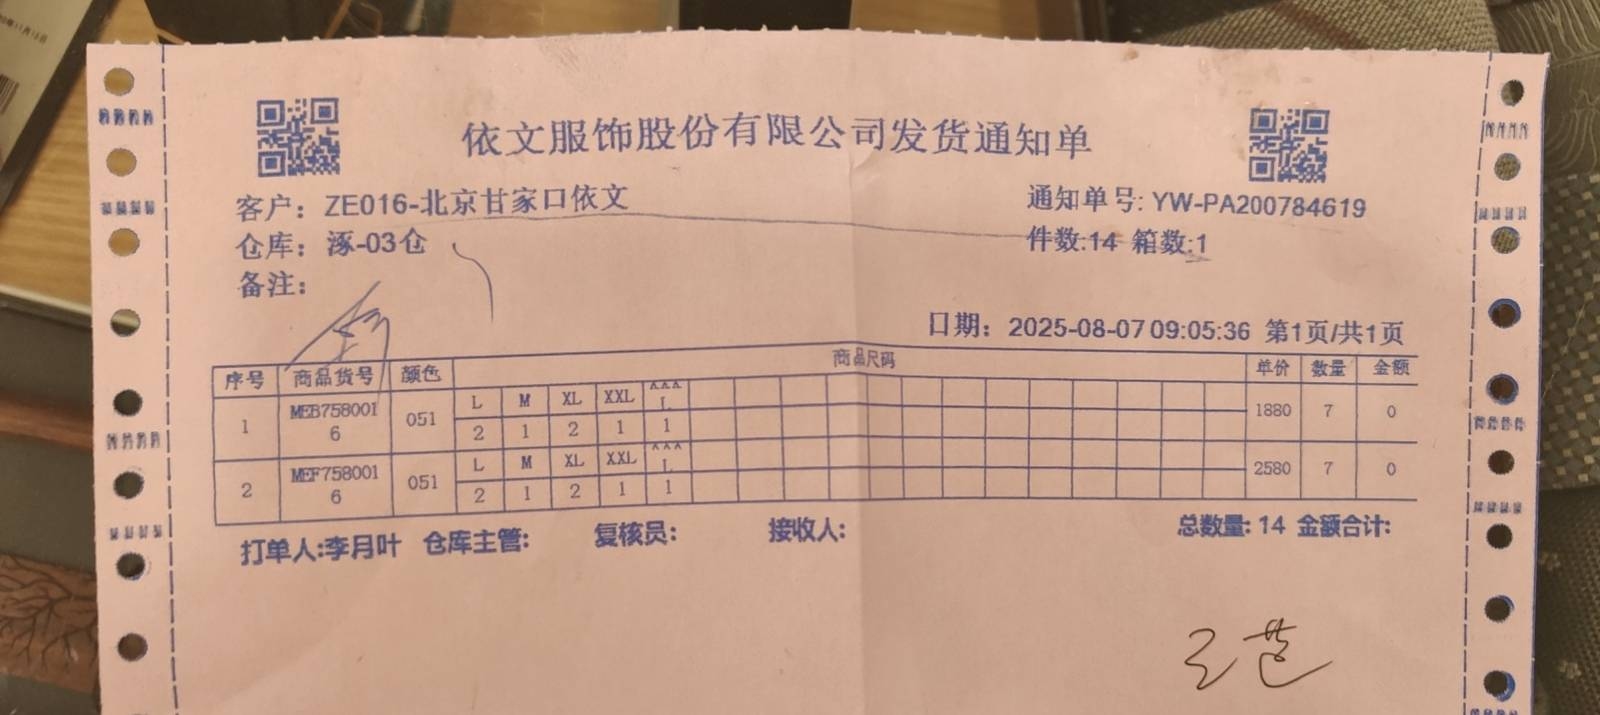 依文服饰股份有限公司发货通知单
客户: ZE016-北京甘家口依文 通知单号: YW-PA200784619
仓库: 涿-03仓 件数:14 箱数:1
备注:
日期: 2025-08-07 09:05:36 第1页/共1页
序号 商品货号 颜色 商品尺码 单价 数量 金额
1 MEB7580016 051 L M XL XXL 1880 7 0
2 1 2 1 1
2 MEF7580016 051 L M XL XXL 2580 7 0
2 1 2 1 1
打单人:李月叶 仓库主管: 复核员: 接收人: 总数量: 14 金额合计: